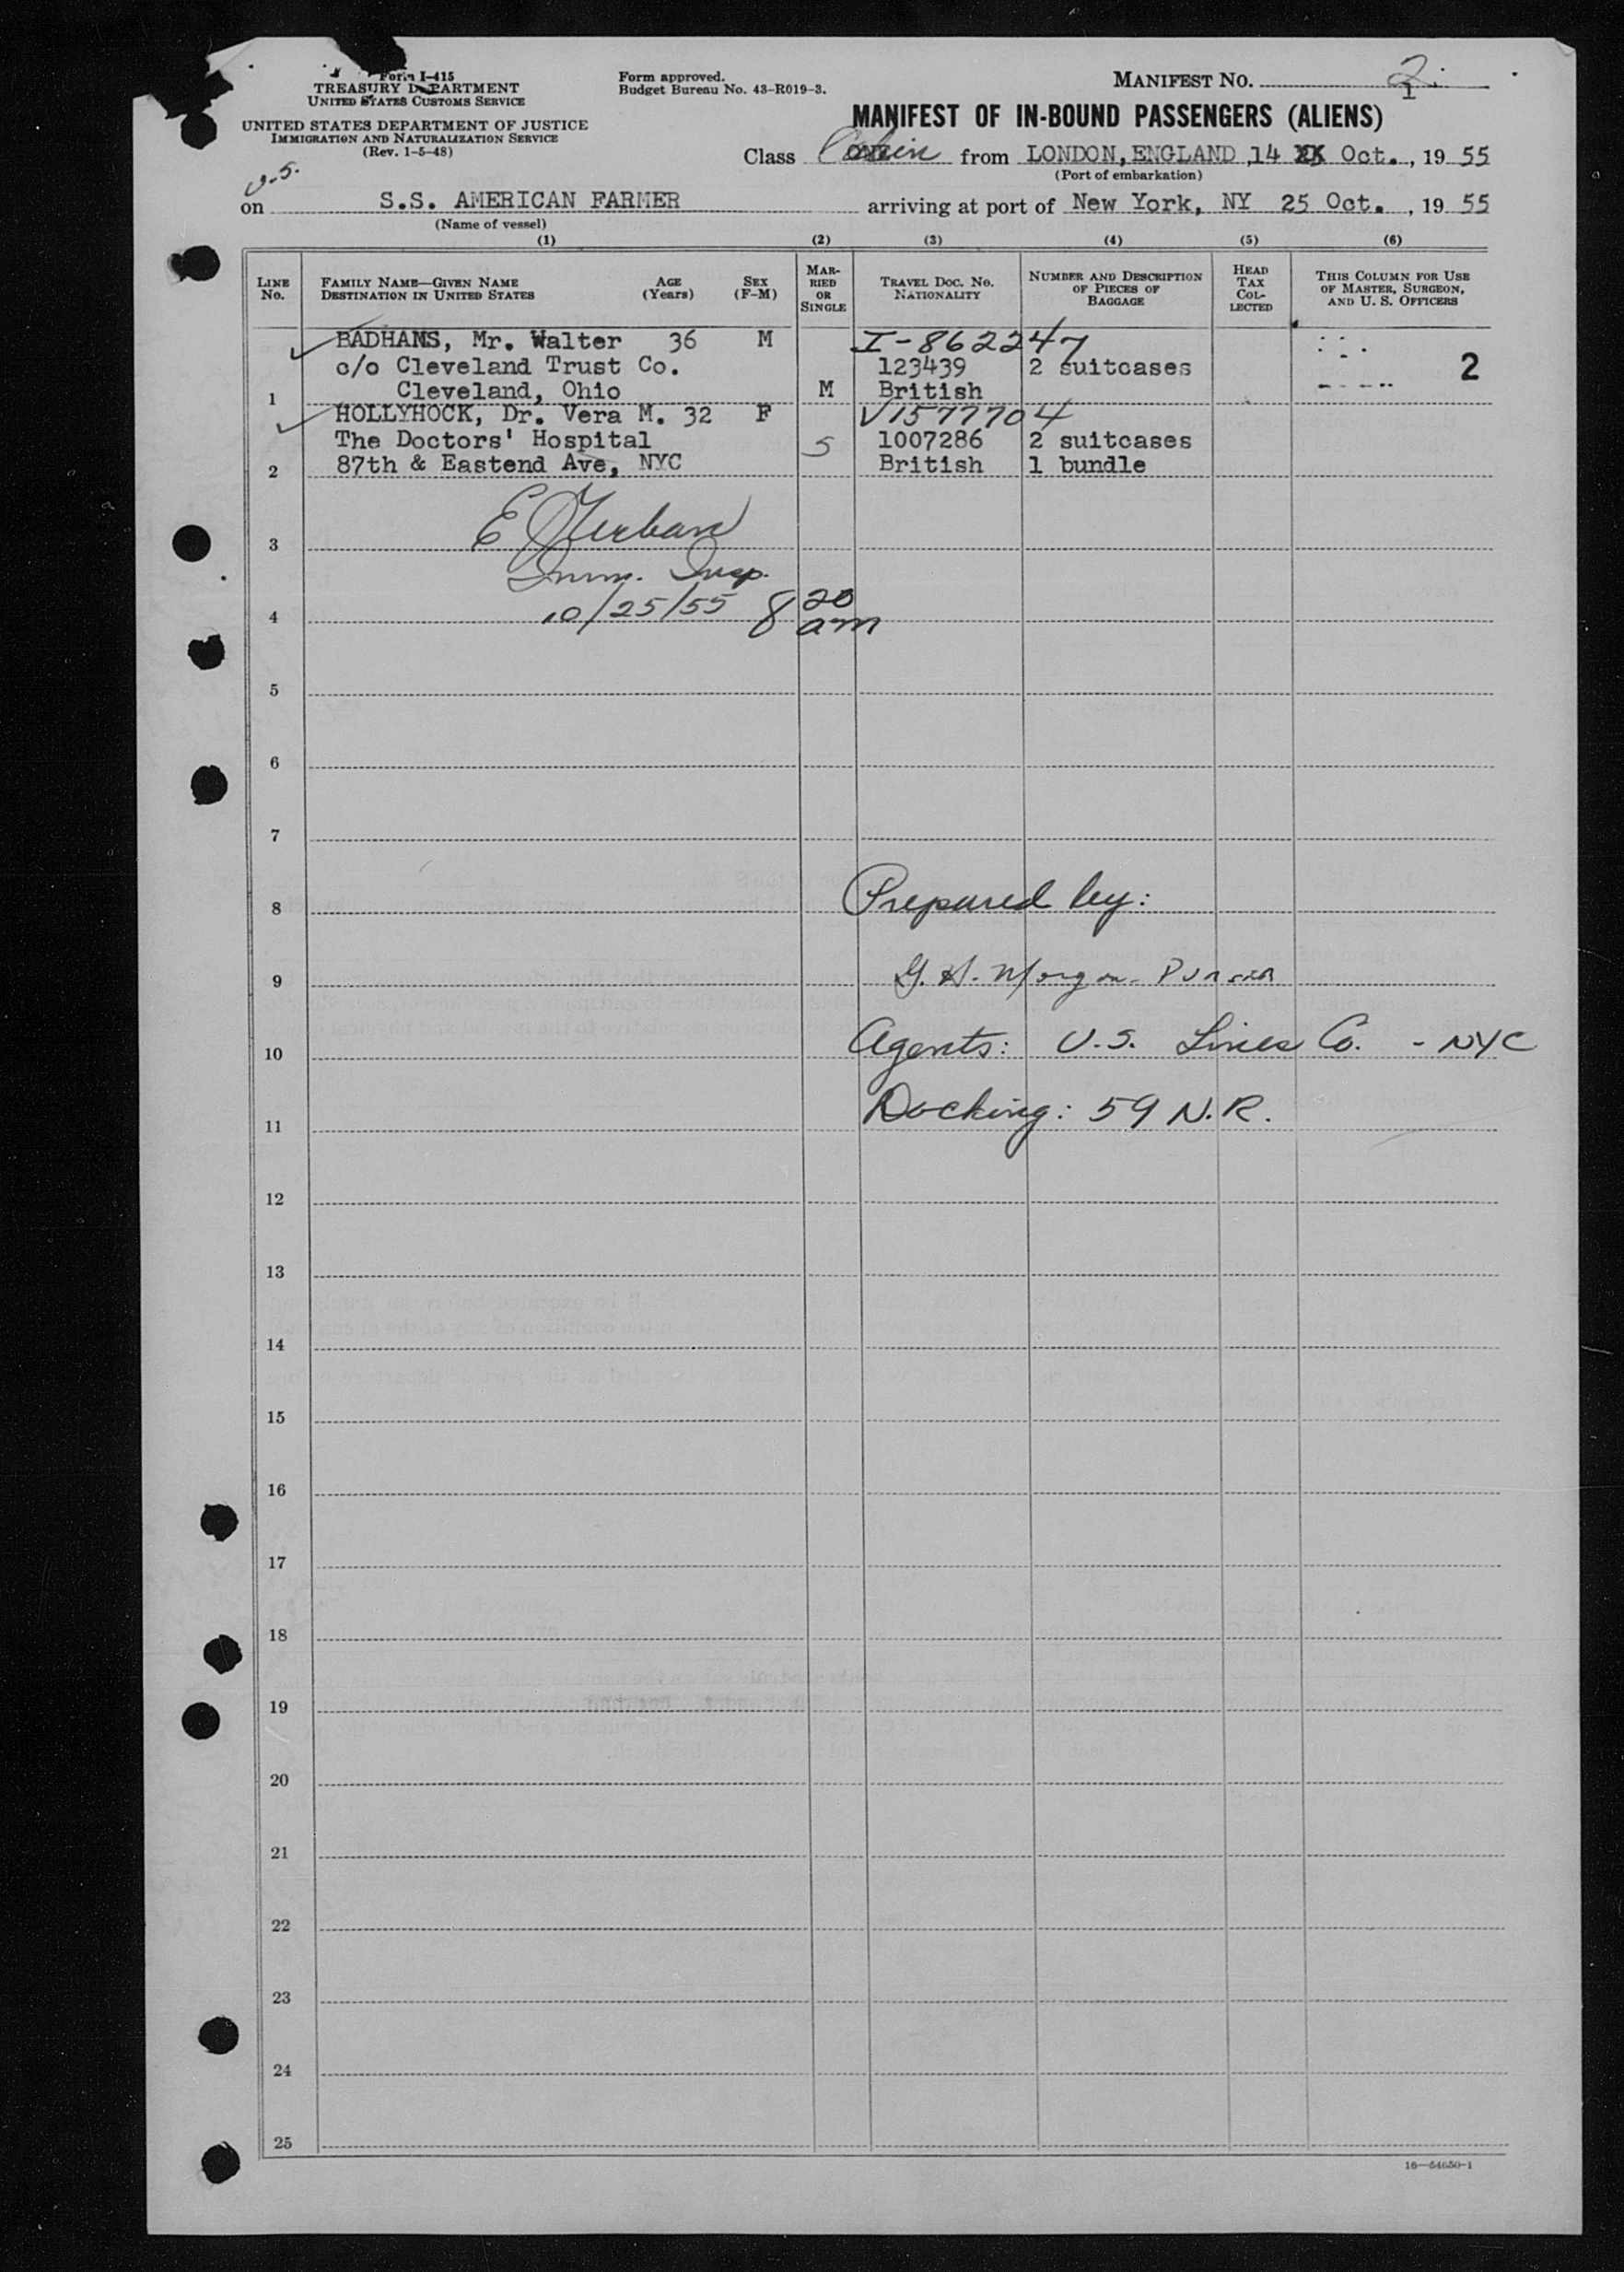 Form I-415
TREASURY DEPARTMENT
UNITED STATES CUSTOMS SERVICE
UNITED STATES DEPARTMENT OF JUSTICE
IMMIGRATION AND NATURALIZATION SERVICE
(Rev. 1-5-48)
Form approved.
Budget Bureau No. 43-R019-3.
MANIFEST NO. 2
1
MANIFEST OF IN-BOUND PASSENGERS (ALIENS)
Class Cabin from LONDON, ENGLAND, 14 XX Oct., 19 55
(Port of embarkation)
U.S.
on S.S. AMERICAN FARMER arriving at port of New York, NY 25 Oct., 19 55
(Name of vessel)
(1) (2) (3) (4) (5) (6)
LINE No. FAMILY NAME—GIVEN NAME DESTINATION IN UNITED STATES AGE (Years) SEX (F-M) MARRIED OR SINGLE TRAVEL DOC. NO. NATIONALITY NUMBER AND DESCRIPTION OF PIECES OF BAGGAGE HEAD TAX COLLECTED THIS COLUMN FOR USE OF MASTER, SURGEON, AND U. S. OFFICERS
BADHAMS, Mr. Walter 36 M I-862247
c/o Cleveland Trust Co. 123439 2 suitcases 2
1 Cleveland, Ohio M British
HOLLYHOCK, Dr. Vera M. 32 F V1577704
The Doctors' Hospital S 1007286 2 suitcases
2 87th & Eastend Ave, NYC British 1 bundle
3
Imm. Insp.
4 10/25/55 8 20 am
5
6
7
8 Prepared by:
9 G. H. Morgan - Purser
10 Agents: U.S. Lines Co. - NYC
11 Docking: 59 N.R.
12
13
14
15
16
17
18
19
20
21
22
23
24
25
16—54650-1